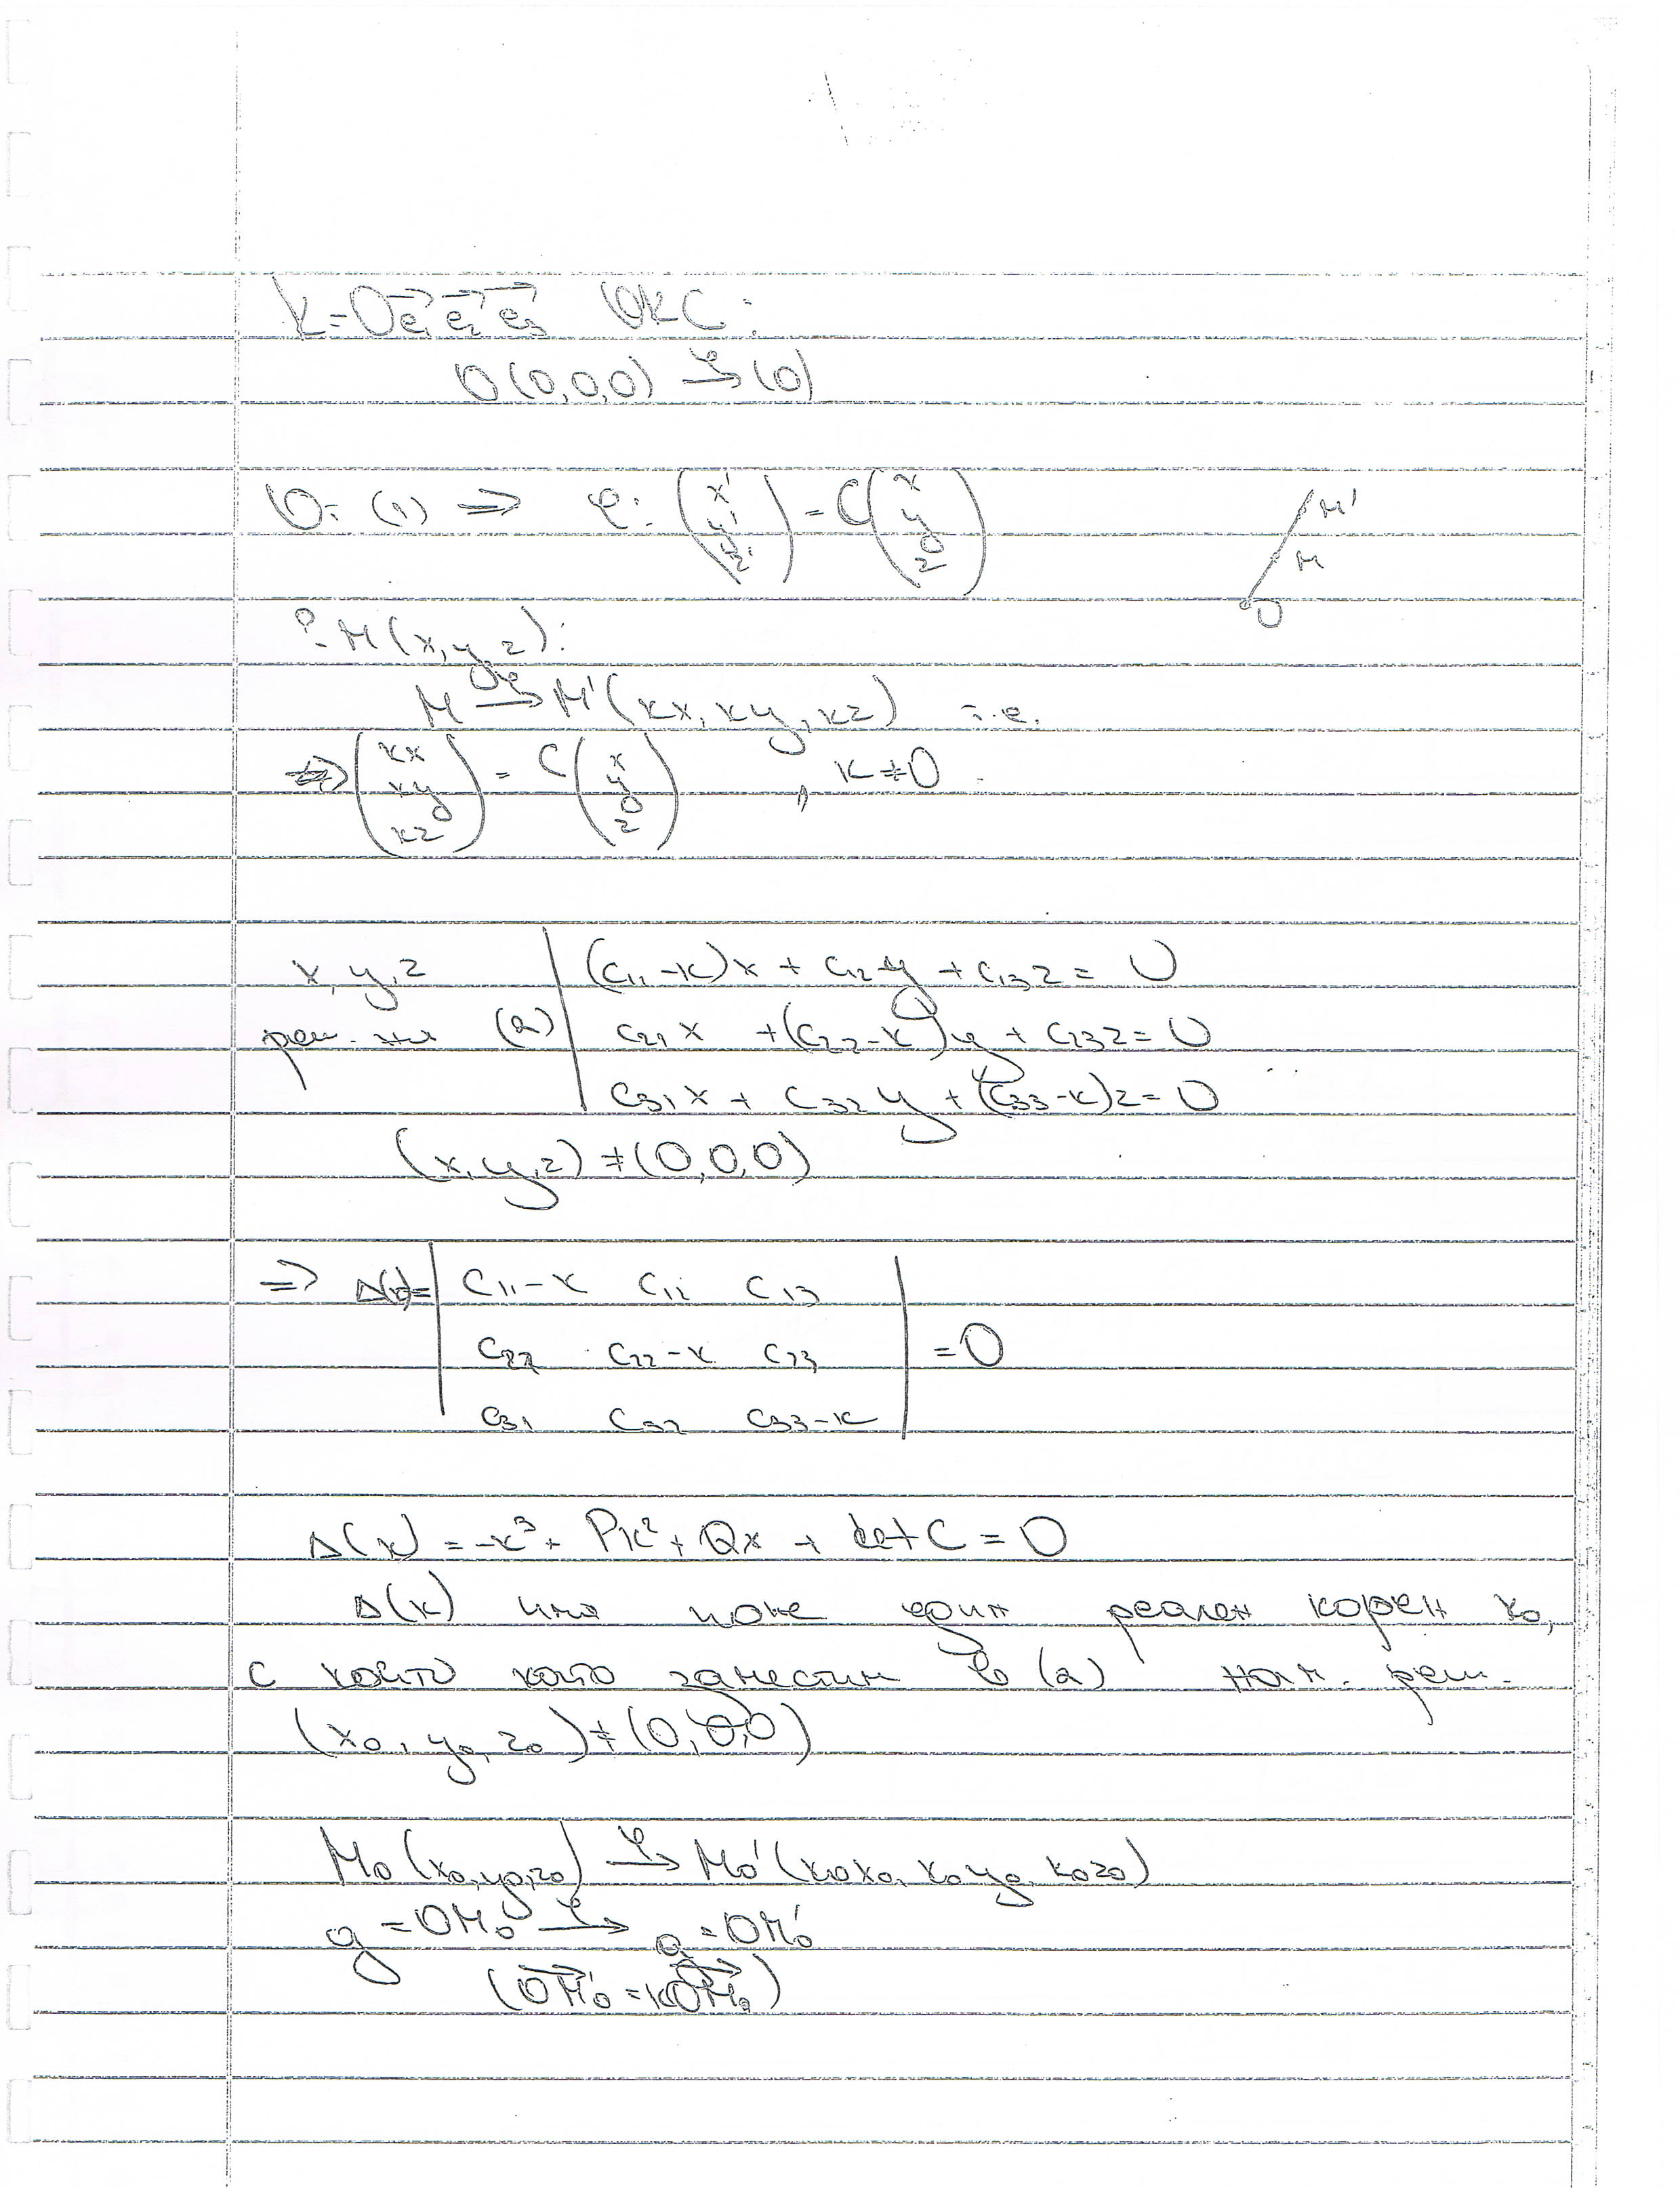 K=O e₁→ e₂→ e₃→ ОКС:
O(0,0,0) →φ (0)
От (1) ⇒ φ: (x' y' z') = C (x y z)
M'
M
O
?. M(x,y,z):
M →φ M'(kx, ky, kz) т.е.
(kx ky kz) = C (x y z) , k≠0
x, y, z | (c₁₁-k)x + c₁₂y + c₁₃z = 0
реш. на (2) | c₂₁x + (c₂₂-k)y + c₂₃z = 0
c₃₁x + c₃₂y + (c₃₃-k)z = 0
(x,y,z) ≠ (0,0,0)
⇒ Δ(k)= | c₁₁-k c₁₂ c₁₃ |
| c₂₂ c₂₂-k c₂₃ | = 0
| c₃₁ c₃₂ c₃₃-k |
Δ(k) = -k³ + Pk² + Qk + det C = 0
Δ(k) има поне един реален корен k₀,
с който като заместим в (2) нам. реш.
(x₀, y₀, z₀) ≠ (0,0,0)
M₀(x₀,y₀,z₀) →φ M₀'(k₀x₀, k₀y₀, k₀z₀)
g = OM₀ →φ g = OM₀'
(OM₀'→ = kOM₀→)